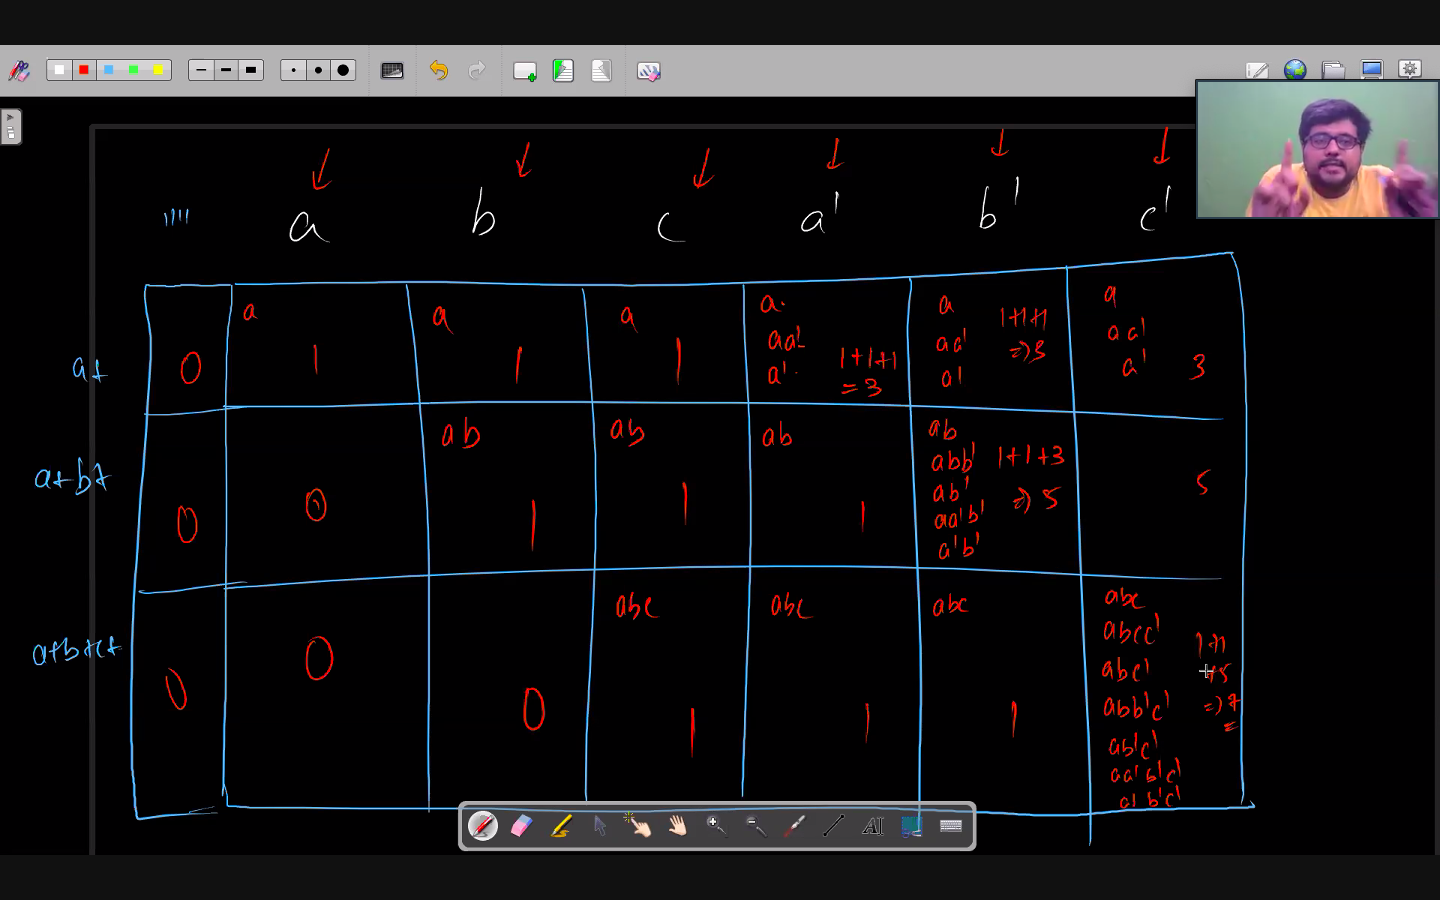 '''' a b c a' b' c'
a+ 0
a
1
a
1
a
1
a.
aa'-
a'.
1+1+1
= 3
a
aa'
a'
1+1+1
=> 3
a
aa'
a'
3
a+b+ 0
0
ab
1
ab
1
ab
1
ab
abb'
ab'
aa'b'
a'b'
1+1+3
=> 5
5
a+b+c+ 0
0
0
abc
1
abc
1
abc
1
abc
abcc'
abc'
abb'c'
ab'c'
aa'b'c'
a'b'c'
1+1
+5
=> 7
=
AI